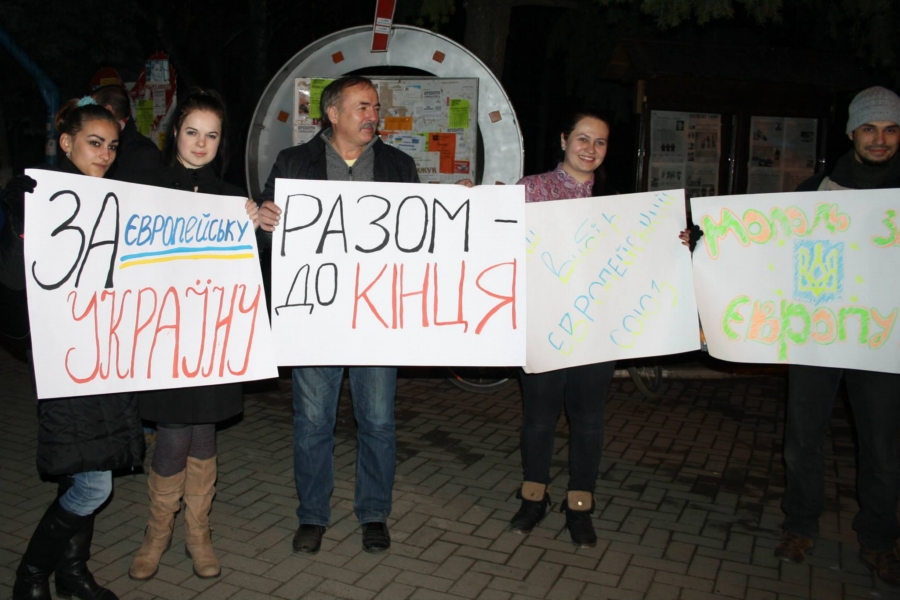 ЗА ЄВРОПЕЙСЬКУ
УКРАЇНУ
РАЗОМ -
ДО КІНЦЯ
ЄВРОПЕЙСЬКИЙ
СОЮЗ
МОЛОДЬ З
ЄВРОПУ